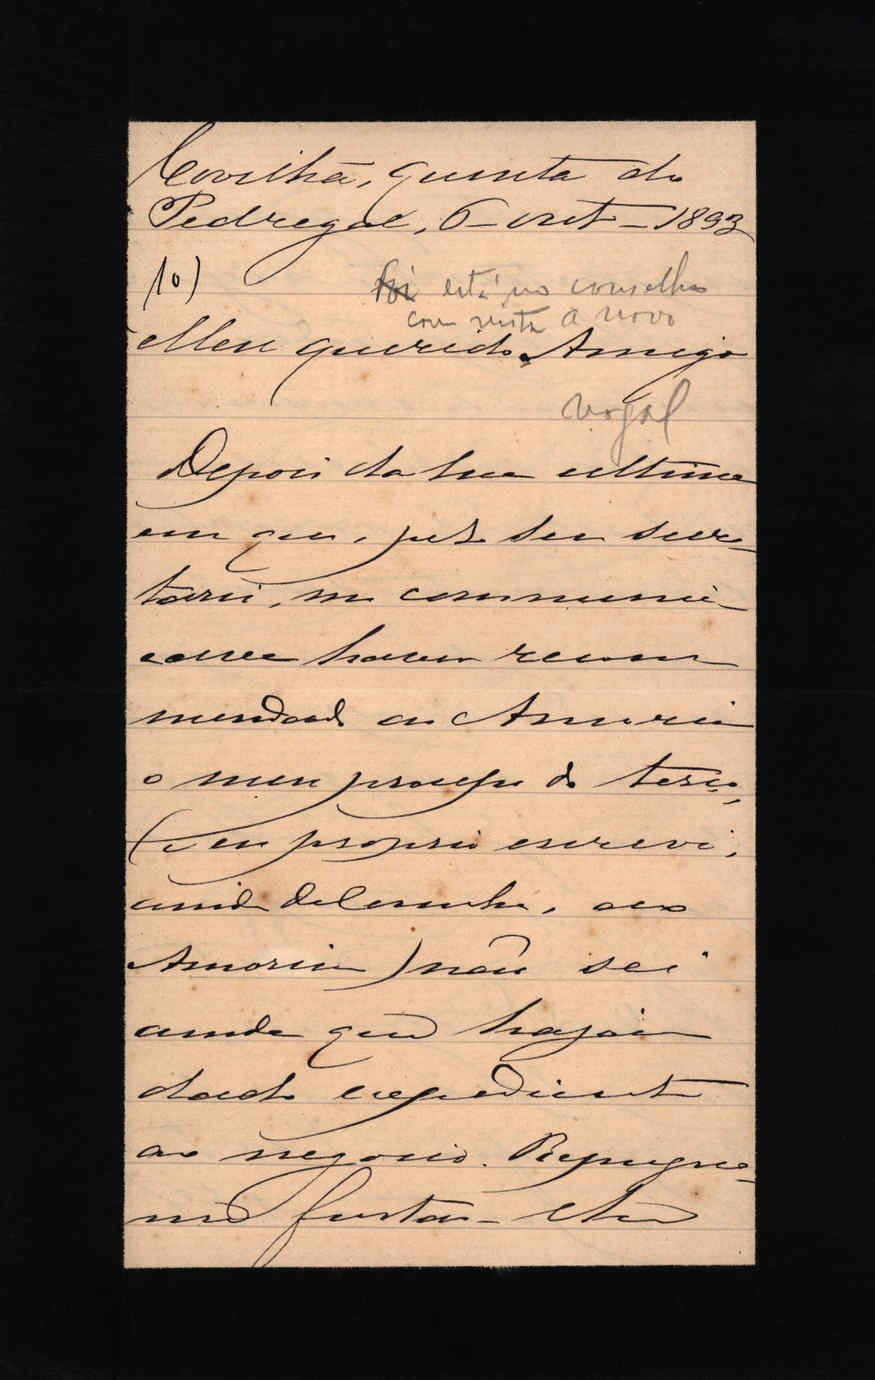 Covilhã, quinta do
Pedregal, 6 - out - 1893
10)
está no conselho
com vista a novo
vogal
Meu querido Amigo
Depois da sua ultima
em que, pelo seu secre-
tario, me communi-
cava haver recom
mendado ao Amorim
o meu processo do
(e eu proprio escrevi,
ainda de Coimbra, ao
Amorim) não sei
ainda que hajam
dado expediente
ao negocio. Repugna-
me furtar-lhe